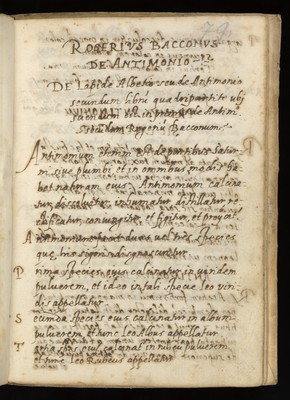 ROGERIUS BACCONUS
DE ANTIMONIO
DE Lapide Albetio seu de Antimonio
secundum libru quadripartite ubi
de Antim
Rogeriu Bacconum
Antimonium est de partibus Satur-
ni, sive plumbi et in omnibus modis ha-
bet naturam eius. Antimonium calcina-
tur, dissolvitur, distillatur, re-
ctificatur, coniungitur, et figitur, et
Antimonium duas vel tres species
que
P rima species eius calcinatur in viridem
pulverem, et ideo in tali specie Leo viri-
dis appellatur
S ecunda species eius calcinatur in album
pulverem et tunc Leo Albus appellatur
T ertia species eius calcinat in rubeu pulverem
et tunc Leo Rubeus appellatur